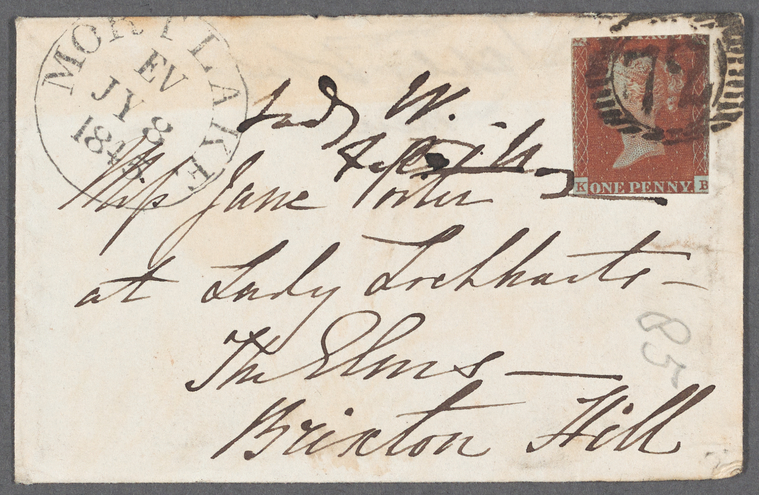 MORTLAKE
EV
JY 8
184
72
K ONE PENNY B
Lady W.
Miss Jane Porter
at Lady Lockharts –
The Elms —
Brixton Hill
85